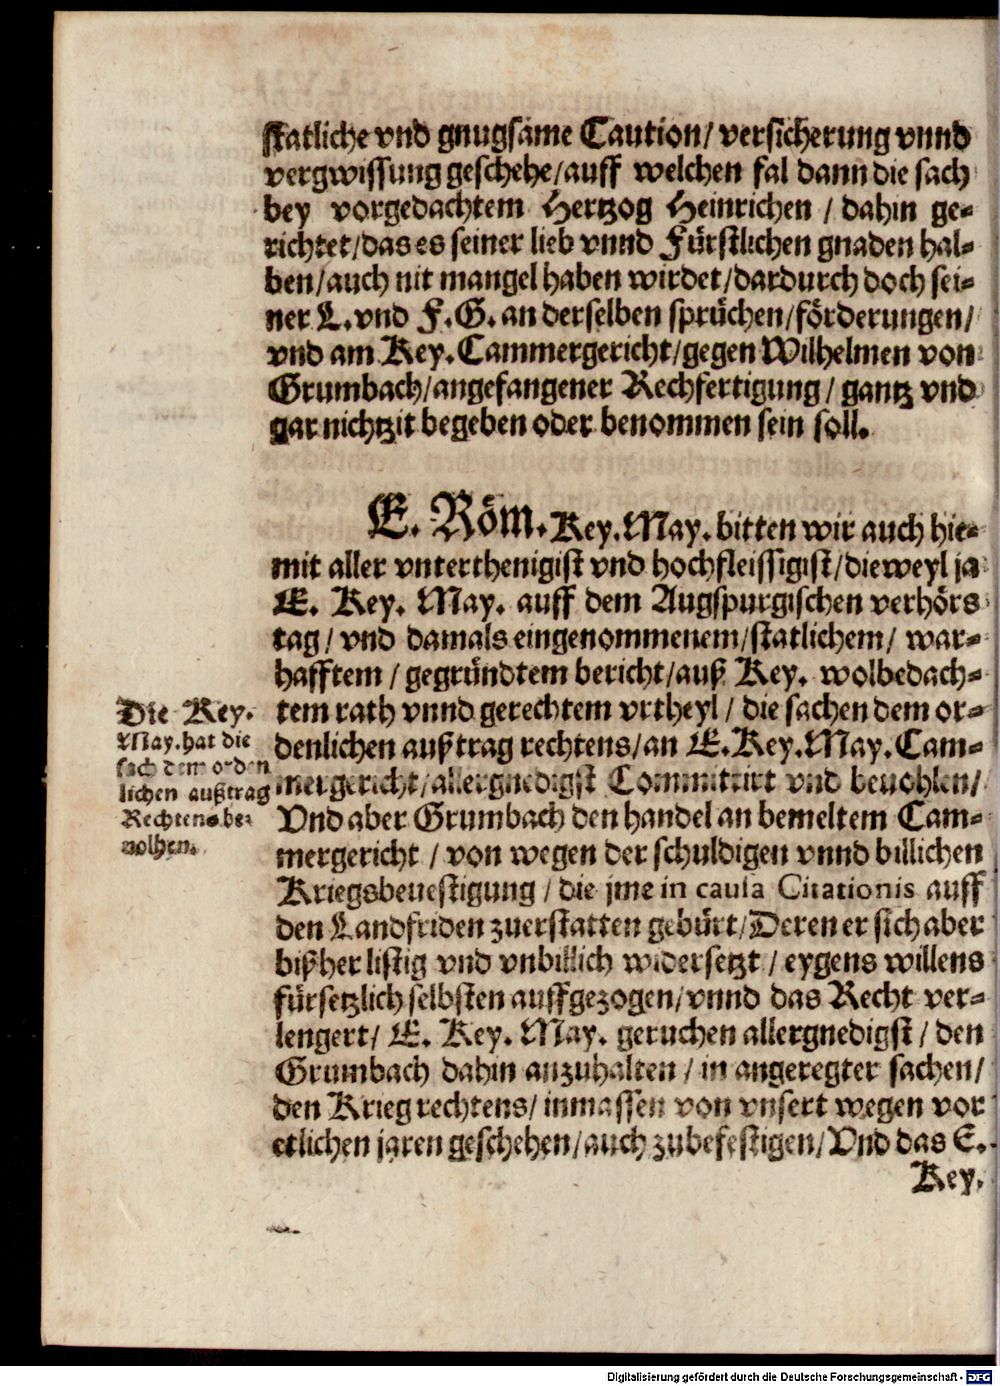 statliche vnd gnugsame Caution/ versicherung vnnd
vergwissung geschehe/auff welchen fal dann die sach
bey vorgedachtem Hertzog Heinrichen / dahin ge-
richtet/das es seiner lieb vnnd Fürstlichen gnaden hal-
ben/auch nit mangel haben wirdet/dardurch doch sei-
ner L.vnd F.G. an derselben sprüchen/förderungen/
vnd am Key.Cammergericht/gegen Wilhelmen von
Grumbach/angefangener Rechfertigung / gantz vnd
gar nichtzit begeben oder benommen sein soll.
E. Röm.Key.May. bitten wir auch hie-
mit aller vnterthenigist vnd hochfleissigist/dieweyl ja
E. Key. May. auff dem Augspurgischen verhörs
tag / vnd damals eingenommenem/statlichem/ war-
hafftem / gegründtem bericht/auß Key. wolbedach-
tem rath vnnd gerechtem vrtheyl / die sachen dem or-
denlichen außtrag rechtens/an E.Key.May.Cam-
mergericht/allergnedigst Committirt vnd beuohlen/
Vnd aber Grumbach den handel an bemeltem Cam-
mergericht / von wegen der schuldigen vnnd billichen
Kriegsbeuestigung / die jme in causa Citationis auff
den Landfriden zuerstatten gebürt/Deren er sich aber
bißher listig vnd vnbillich widersetzt / eygens willens
fürsetzlich selbsten auffgezogen/vnnd das Recht ver-
lengert/ E. Key. May. geruchen allergnedigst / den
Grumbach dahin anzuhalten / in angeregter sachen/
den Krieg rechtens/ inmassen von vnsert wegen vor
etlichen jaren geschehen/auch zubefestigen/Vnd das E.
Key.
Die Key.
May.hat die
sach dem orden
lichen außtrag
Rechtens be-
uolhen.
Digitalisierung gefördert durch die Deutsche Forschungsgemeinschaft - DFG